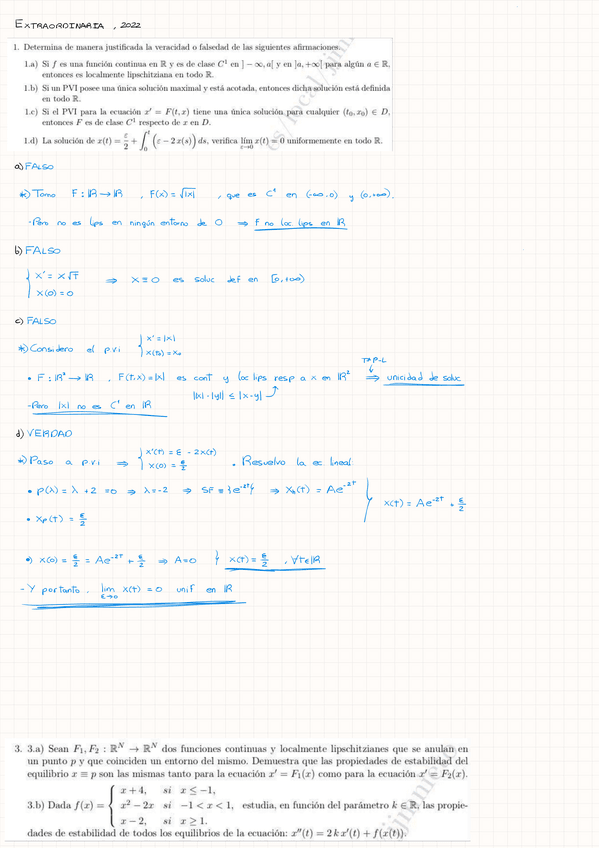 EXTRAORDINARIA, 2022
1. Determina de manera justificada la veracidad o falsedad de las siguientes afirmaciones.
1.a) Si f es una función continua en ℝ y es de clase C¹ en ]−∞, a[ y en ]a, +∞[ para algún a ∈ ℝ,
entonces es localmente lipschitziana en todo ℝ.
1.b) Si un PVI posee una única solución maximal y está acotada, entonces dicha solución está definida
en todo ℝ.
1.c) Si el PVI para la ecuación x' = F(t, x) tiene una única solución para cualquier (t₀, x₀) ∈ D,
entonces F es de clase C¹ respecto de x en D.
1.d) La solución de x(t) = ε/2 + ∫₀ᵗ (ε − 2 x(s)) ds, verifica lím_{ε→0} x(t) = 0 uniformemente en todo ℝ.
a) FALSO
*) Tomo F: ℝ → ℝ, F(x) = √|x|, que es C¹ en (-∞,0) y (0,+∞).
- Pero no es lips en ningún entorno de 0 ⇒ F no loc lips en ℝ
b) FALSO
{ x' = x√t
x(0) = 0 ⇒ x ≡ 0 es soluc def en [0,+∞)
c) FALSO
*) Considero el pvi { x' = |x|
x(t₀) = x₀
TªP-L
• F: ℝ² → ℝ, F(t,x) = |x| es cont y loc lips resp a x en ℝ² ⇒ unicidad de soluc
||x| - |y|| ≤ |x-y|
- Pero |x| no es C¹ en ℝ
d) VERDAD
*) Paso a pvi ⇒ { x'(t) = ε - 2x(t)
x(0) = ε/2 • Resuelvo la ec lineal:
• p(λ) = λ + 2 = 0 ⇒ λ = -2 ⇒ SF = {e^{-2t}} ⇒ x_h(t) = Ae^{-2t}
x(t) = Ae^{-2t} + ε/2
• x_p(t) = ε/2
•) x(0) = ε/2 = Ae^{-2t} + ε/2 ⇒ A = 0 } x(t) = ε/2, ∀t∈ℝ
- Y por tanto, lim_{ε→0} x(t) = 0 unif en ℝ
3. 3.a) Sean F₁, F₂ : ℝᴺ → ℝᴺ dos funciones continuas y localmente lipschitzianes que se anulan en
un punto p y que coinciden un entorno del mismo. Demuestra que las propiedades de estabilidad del
equilibrio x ≡ p son las mismas tanto para la ecuación x' = F₁(x) como para la ecuación x' = F₂(x).
3.b) Dada f(x) = { x + 4, si x ≤ −1,
x² − 2x si −1 < x < 1, estudia, en función del parámetro k ∈ ℝ, las propie-
x − 2, si x ≥ 1.
dades de estabilidad de todos los equilibrios de la ecuación: x''(t) = 2 k x'(t) + f(x(t)).